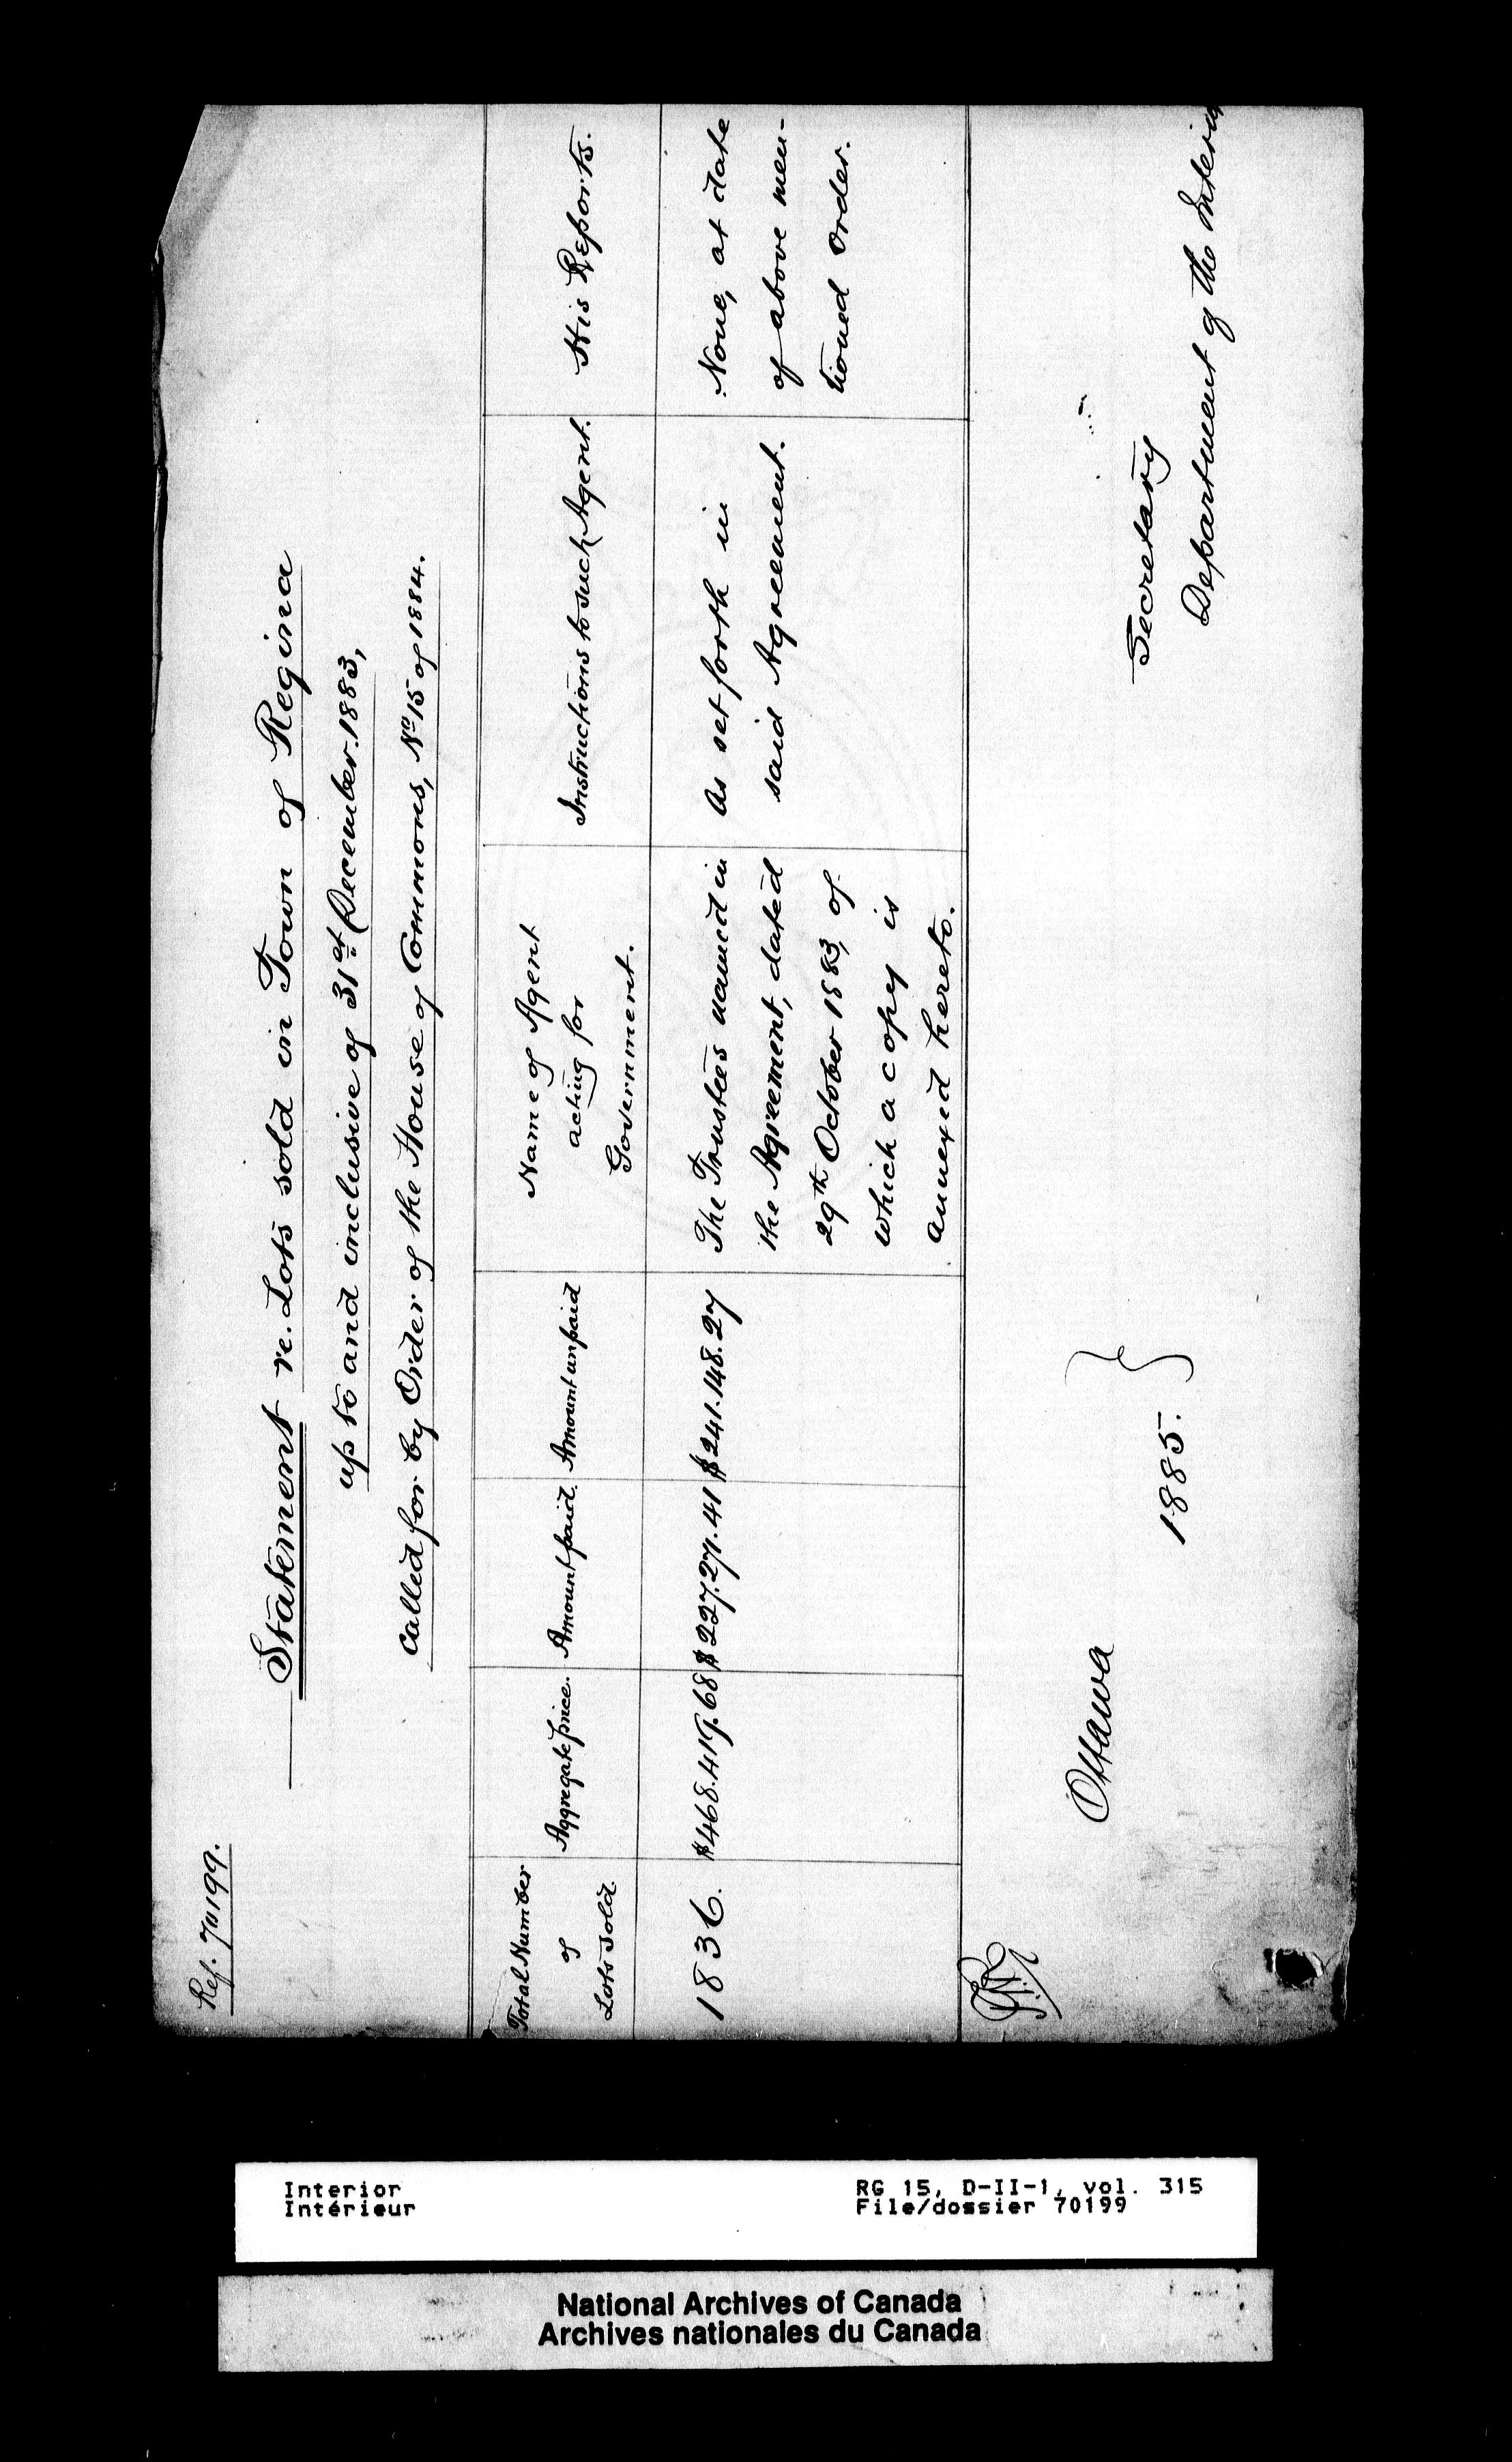 Ref. 70199.
Statement re. Lots sold in Town of Regina
up to and inclusive of 31st December 1883,
called for by Order of the House of Commons, No 15 of 1884.
Total Number
of
Lots sold.
Aggregate price.
Amount paid.
Amount unpaid
Name of Agent
acting for
Government.
Instructions to such Agent.
His Reports.
1836.
$468.419.68
$227.271.41
$241.148.27
The Trustees named in
the Agreement, dated
29th October 1883, of
which a copy is
annexed hereto.
As set forth in
said Agreement.
None, at date
of above men-
tioned Order.
Ottawa
1885. }
Secretary
Department of the Interior
Interior
Intérieur
RG 15, D-II-1, vol. 315
File/dossier 70199
National Archives of Canada
Archives nationales du Canada